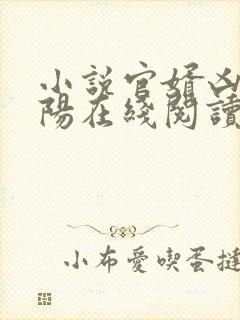 小說官婿凶
陽在綫閱讀
小布愛喫蛋撻